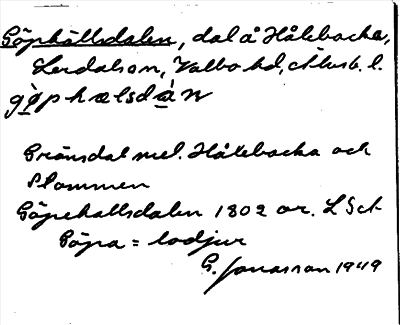 Göphällsdalen, dal å Håkebacka,
Lerdalson, Valbo hd, Älvsb. l.
gö̀phælsdàn
Gränsdal mel. Håkebacka och
Plommen
Göpehallsdalen 1802 or. L Sch
Göpa = lodjur
G. Jonasson 1949